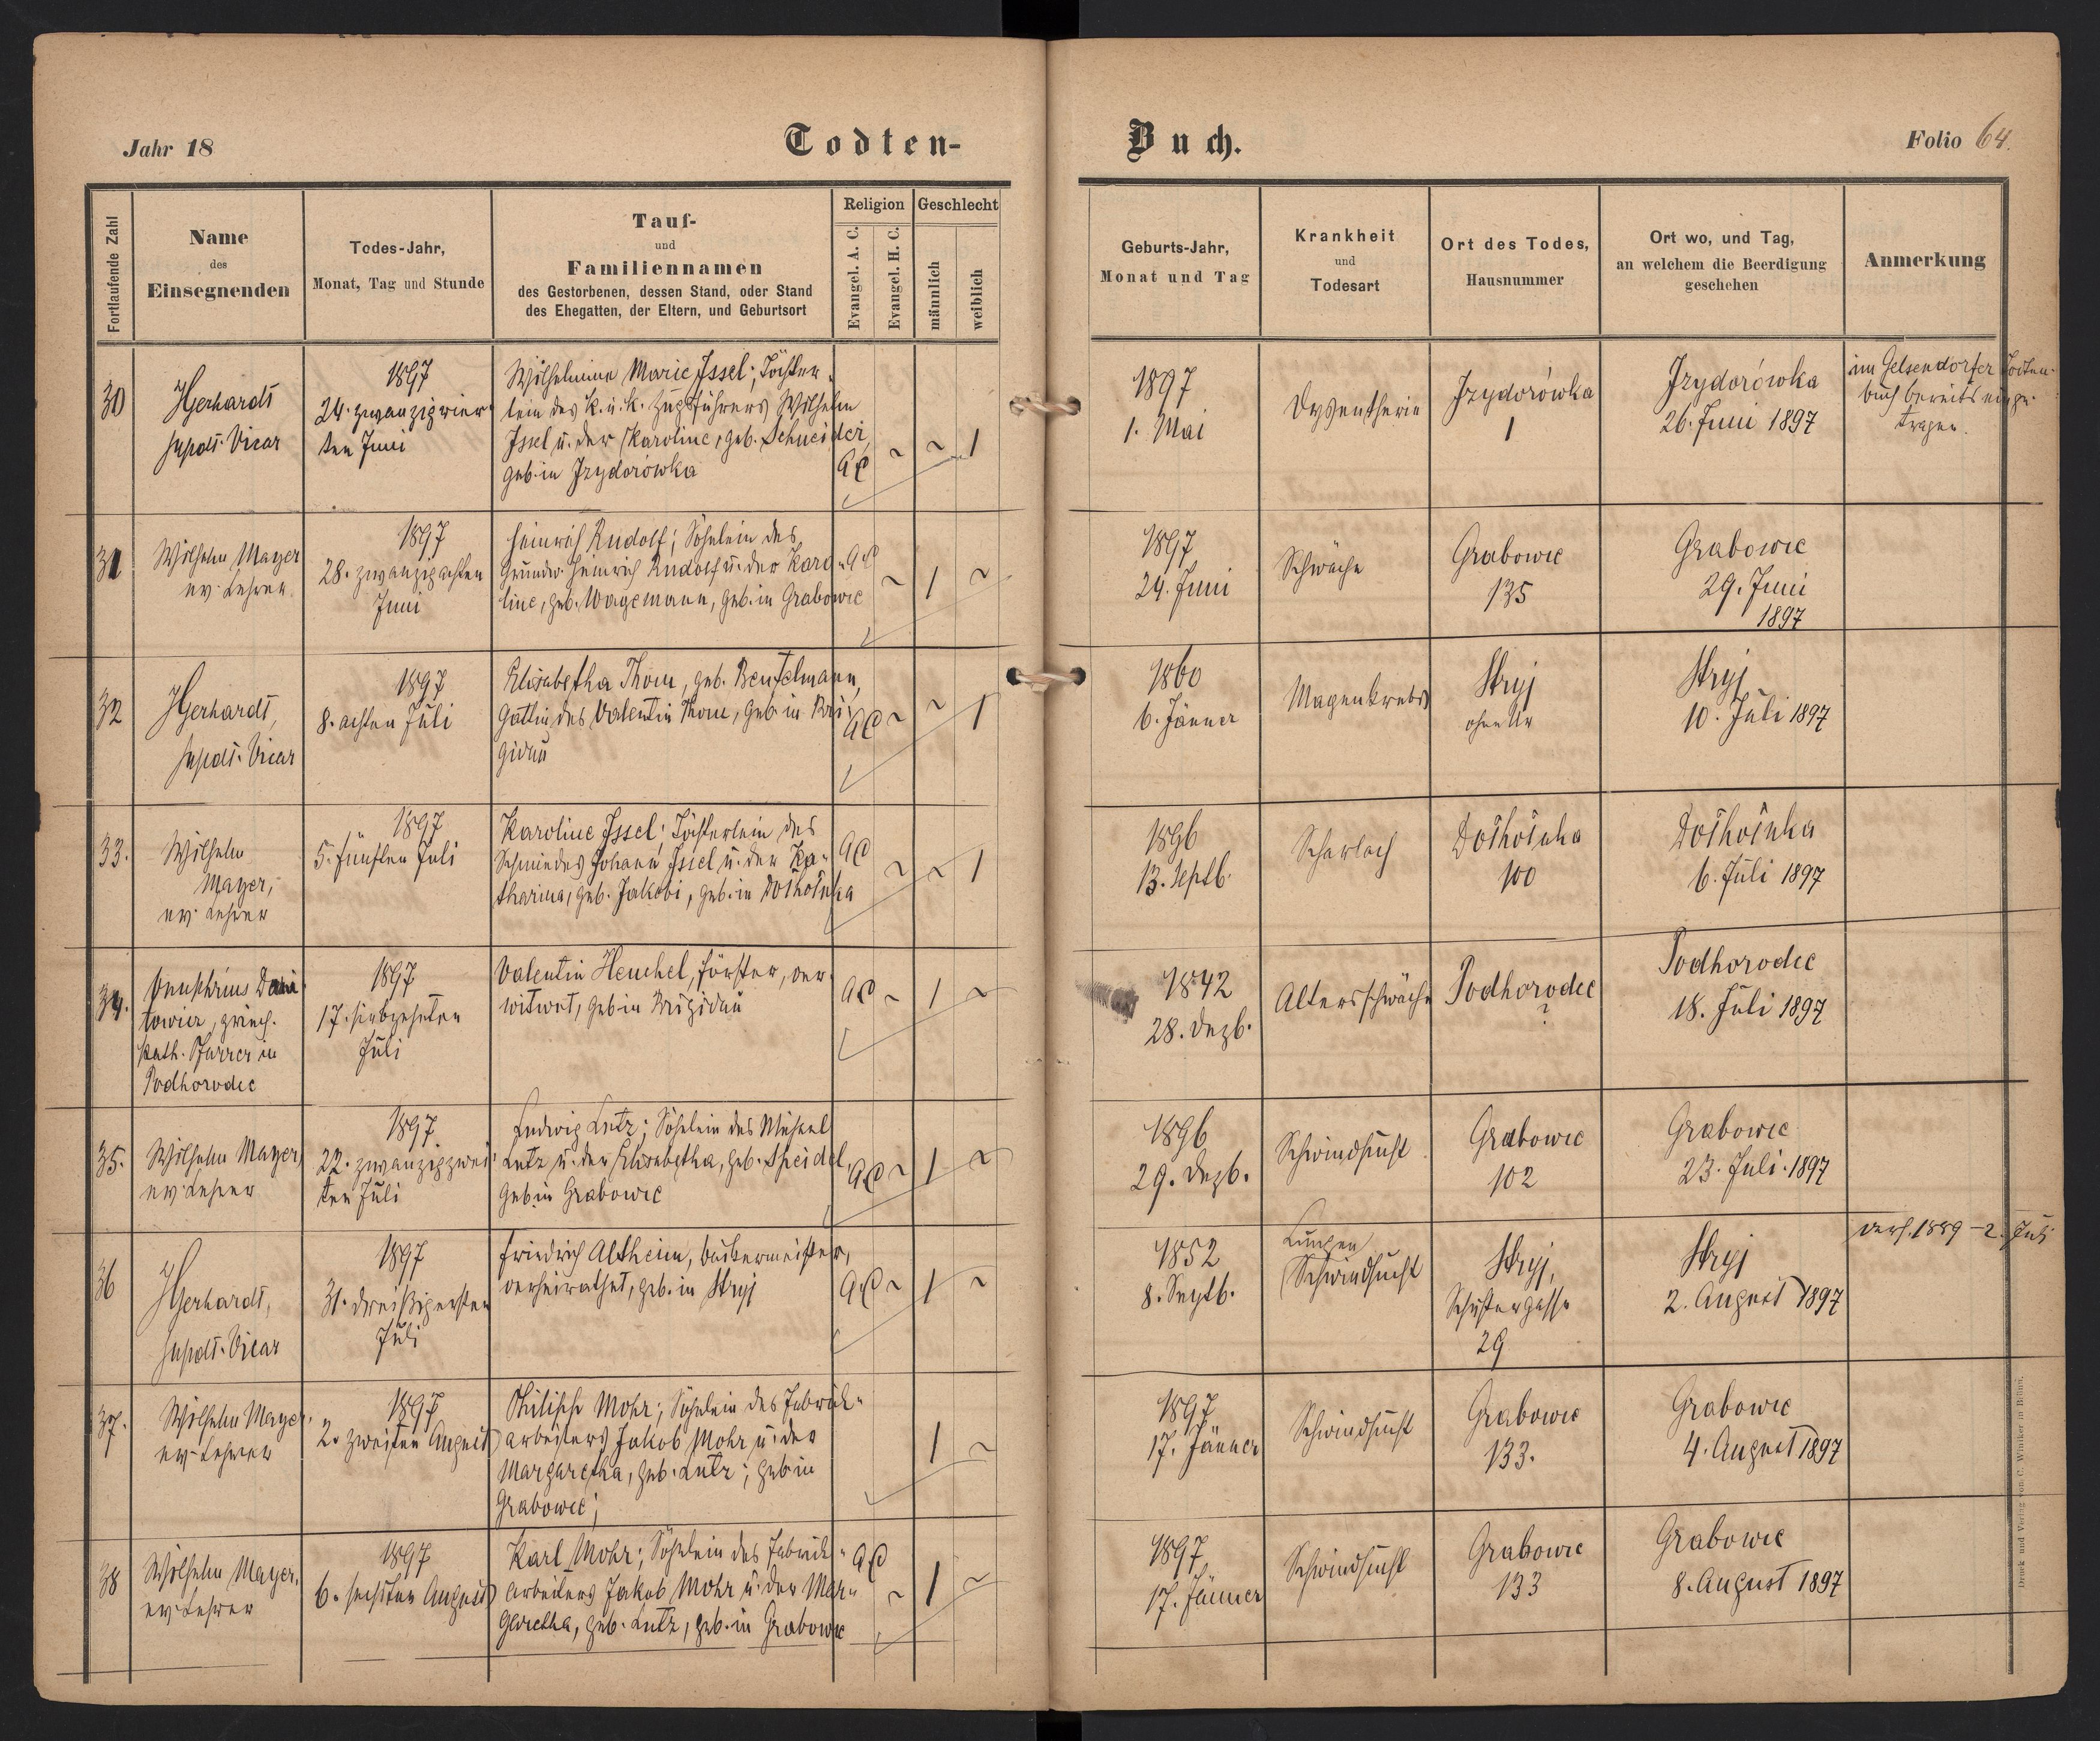 Jahr 18
Todten-
Buch.
Folio 64.
Fortlaufende Zahl
Name
des
Einsegnenden
Todes-Jahr,
Monat, Tag und Stunde
Tauf-
und
Familiennamen
des Gestorbenen, dessen Stand, oder Stand
des Ehegatten, der Eltern, und Geburtsort
Religion
Evangel. A. C.
Evangel. H. C.
Geschlecht
männlich
weiblich
Geburts-Jahr,
Monat und Tag
Krankheit
und
Todesart
Ort des Todes,
Hausnummer
Ort wo, und Tag,
an welchem die Beerdigung
geschehen
Anmerkung
30
JGerhardt
Supdt. Vicar
1897
24. zwanzigvier-
ten Juni
Wilhelmine Marie Issel; Töchter-
lein des k. u. k. Zugsführers Wilhelm
Issel u. der Karoline, geb. Schneider,
geb. in Izydorówka
AC ~ ~ 1
1897
1. Mai
Dysentherie
Izydorówka
1
Izydorówka
26. Juni 1897
im Gelsendorfer Todten-
buch bereits einge-
tragen.
31
Wilhelm Mayer
ev. Lehrer
1897
28. zwanzigachten
Juni
Heinrich Rudolf; Söhnlein des
Grundw. Heinrich Rudolf u. der Karo-
line, geb. Wagemann, geb. in Grabowic
AC ~ 1 ~
1897
24. Juni
Schwäche
Grabowic
135
Grabowic
29. Juni
1897
32
JGerhardt,
Supdt. Vicar
1897
8. achten Juli
Elisabetha Thom, geb. Beutelmann,
Gattin des Valentin Thom, geb. in Bri-
gidau
AC ~ ~ 1
1860
6. Jänner
Magenkrebs
Stryj
ohne Nr
Stryj
10. Juli 1897
33.
Wilhelm
Mayer,
ev. Lehrer
1897
5. fünften Juli
Karoline Issel; Töchterlein des
Schmiedes Johann Issel u. der Ka-
tharina, geb. Jakobi, geb. in Dołhołuka
AC ~ ~ 1
1896
13. Septb.
Scharlach
Dołhołuka
100
Dołhołuka
6. Juli 1897
34.
towicz, griech.
kath. Pfarrer in
Podhorodec
1897
17. siebzehnten
Juli
Valentin Henchel, Förster, ver-
witwet, geb. in Brigidau
AC ~ 1 ~
1842
28. Dezb.
Altersschwäche
Podhorodec
?
Podhorodec
18. Juli 1897
35.
Wilhelm Mayer,
ev. Lehrer
1897
22. zwanzigzwei-
ten Juli
Ludwig Lutz; Söhnlein des Michael
Lutz u. der Elisabetha, geb. Speidel,
geb. in Grabowic
AC ~ 1 ~
1896
29. Dezb.
Schwindsucht
Grabowic
102
Grabowic
23. Juli 1897
36
JGerhardt,
Supdt. Vicar
1897
31. dreißigersten
Juli
Friedrich Altheim, Bäckermeister,
verheirathet, geb. in Stryj
AC ~ 1 ~
1852
8. Septb.
Lungen
Schwindsucht
Stryj,
Schustergasse
29
Stryj
2. August 1897
verh. 1889 - 2. Juli
37.
Wilhelm Mayer,
ev. Lehrer
1897
2. zweiten August
Philipp Mohr; Söhnlein des Fabriks-
arbeiters Jakob Mohr u. der
Margaretha, geb. Lutz; geb. in
Grabowec;
1 ~
1897
17. Jänner
Schwindsucht
Grabowic
133.
Grabowic
4. August 1897
38
Wilhelm Mayer,
ev. Lehrer
1897
6. sechsten August
Karl Mohr; Söhnlein des Fabriks-
arbeiters Jakob Mohr u. der Mar-
garetha, geb. Lutz, geb. in Grabowic
AC ~ 1 ~
1897
17. Jänner
Schwindsucht
Grabowic
133
Grabowic
8. August 1897
Druck und Verlag von C. Winiker in Brünn.